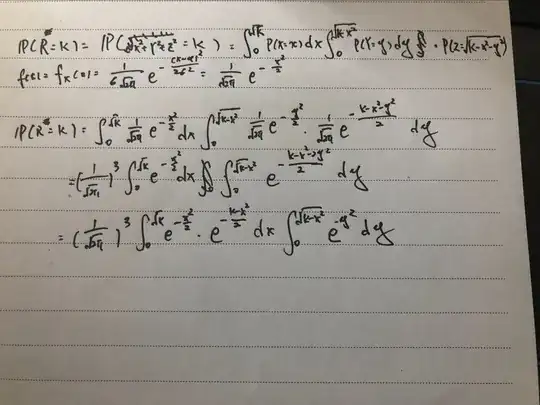 P(R=k) = P(x²+Y²+z²=k²) = ∫₀^√k P(X=x)dx ∫₀^√(k-x²) P(Y=y)dy · P(z=√(k-x²-y²))
f(x) = fₓ(x) = 1/(6√2π) e^(-(x-μ)²/2σ²) = 1/√2π e^(-x²/2)
P(R=k) = ∫₀^√k 1/√2π e^(-x²/2) dx ∫₀^√(k-x²) 1/√2π e^(-y²/2) · 1/√2π e^(-(k-x²-y²)/2) dy
= (1/√2π)³ ∫₀^√k e^(-x²/2) dx ∫₀^√(k-x²) e^(-(k-x²-2y²)/2) dy
= (1/√2π)³ ∫₀^√k e^(-x²/2) · e^(-(k-x²)/2) dx ∫₀^√(k-x²) e^(-y²) dy